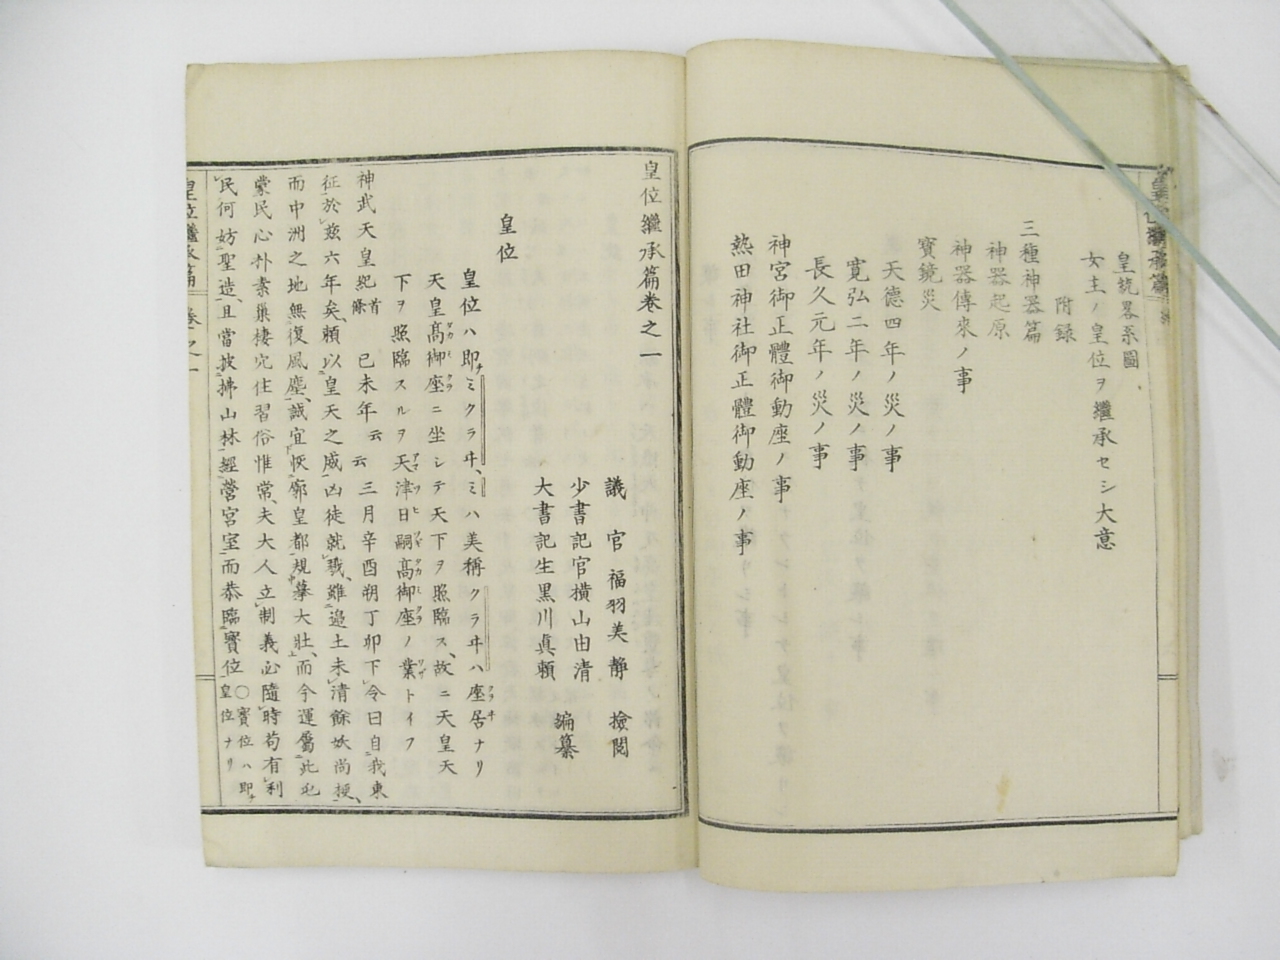 皇統畧系圖
女主ノ皇位ヲ繼承セシ大意
附録
三種神器篇
神器起原
神器傳來ノ事
寶鏡災
天德四年ノ災ノ事
寛弘二年ノ災ノ事
長久元年ノ災ノ事
神宮御正體御動座ノ事
熱田神社御正體御動座ノ事
皇位繼承篇卷之一
議官福羽美靜檢閲
少書記官横山由清
大書記生黒川眞頼
編纂
皇位
皇位ハ即チミクラヰ、ミハ美稱クラヰハ座居ナリ
天皇髙御座ニ坐シテ天下ヲ照臨ス、故ニ天皇天
下ヲ照臨スルヲ天津日嗣髙御座ノ業トイフ
神武天皇紀首條 己未年云云三月辛酉朔丁卯下令曰自我東
征於玆六年矣、頼以皇天之威凶徒就戮、雖邉土未清餘妖尚梗、
而中洲之地無復風塵、誠宜恢廓皇都規摹大壯、而今運屬此屯
蒙民心朴素巢棲穴住習俗惟常、夫大人立制義必隨時苟有利
民何妨聖造、且當披拂山林經營宮室而恭臨寶位〇寶位ハ即皇位ナリ
皇位繼承篇 卷之一